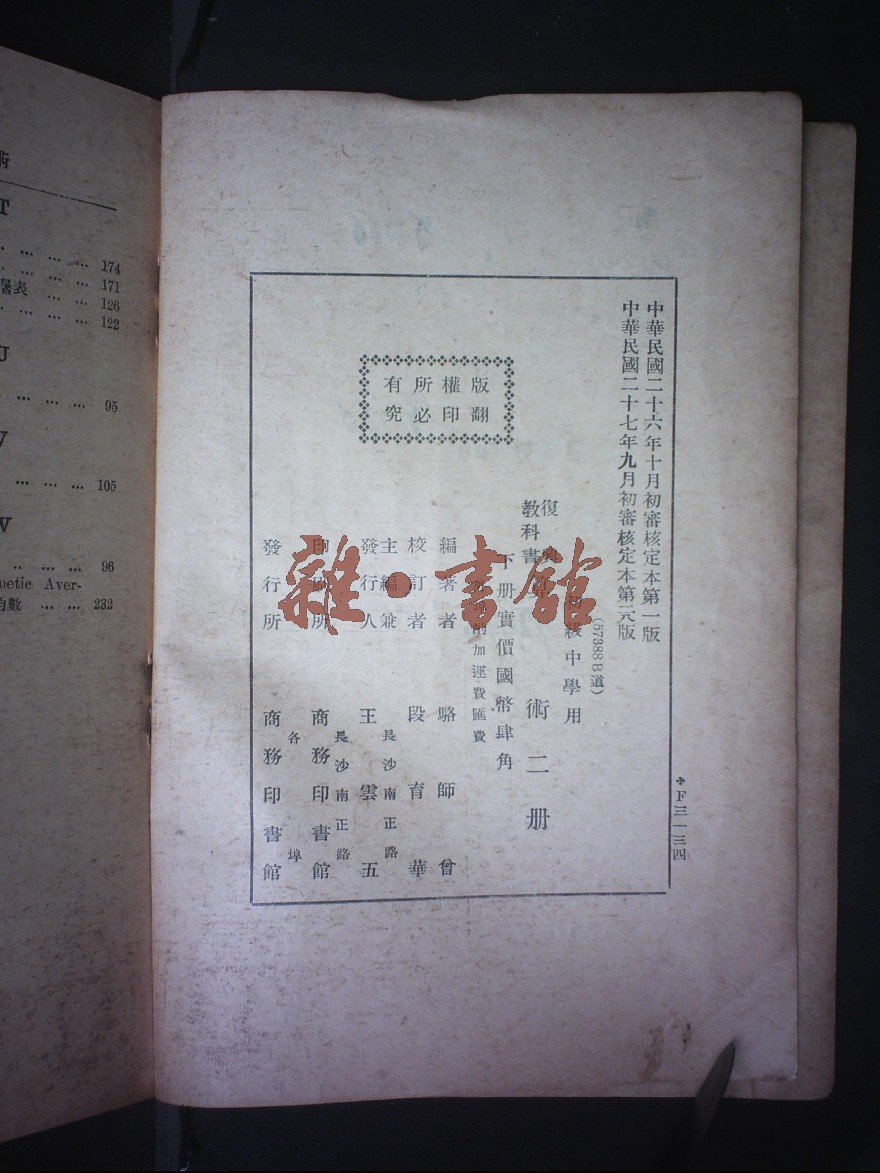 術
T
... ... ... 174
... ... ... 171
署表 ... ... 126
... ... ... 122
U
... ... ... 95
V
... ... ... 105
W
... ... ... 96
metic Aver-
均數 ... ... 232
中華民國二十六年十月初審核定本第一版
中華民國二十七年九月初審核定本第六版
版權所有
翻印必究
(57388B道)
級中學用
復興
教科書
術二册
下册實價國幣肆角
加運費匯費
編著者 駱師曾
校訂者 段育華
主編兼
發行人 王雲五
長沙南正路
印刷所 商務印書館
長沙南正路
發行所 商務印書館
各埠
F三一三四
雜·書館